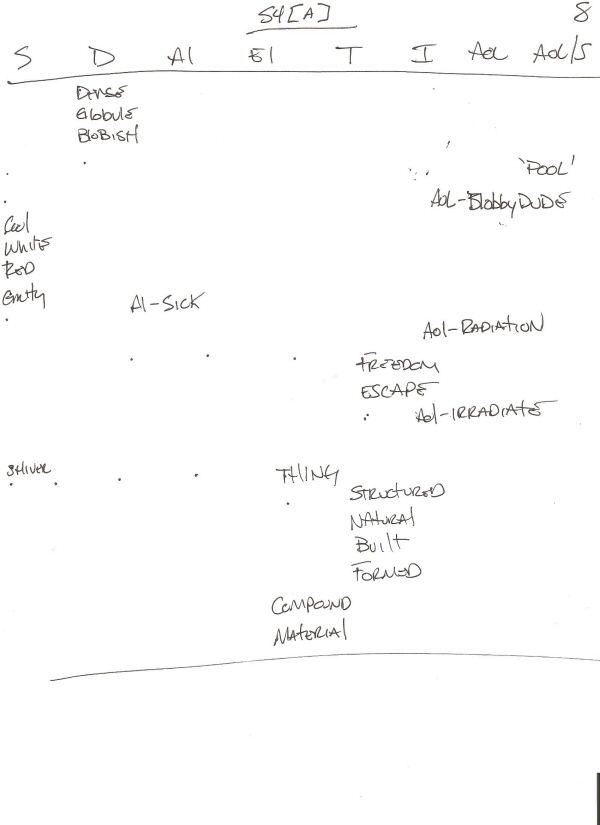 S4[A]
8
S D AI EI T I Aol Aol/S
DENSE
Globule
BloBISH
'POOL'
Aol-BlobbyDUDE
Cool
WHITE
RED
Gritty
AI-SICK
Aol-RADIATION
FREEDOM
ESCAPE
Aol-IRRADIATE
SHIVER
THING
STRUCTURED
NATURAl
BuIlt
FORMED
COMPOUND
MATERIAl